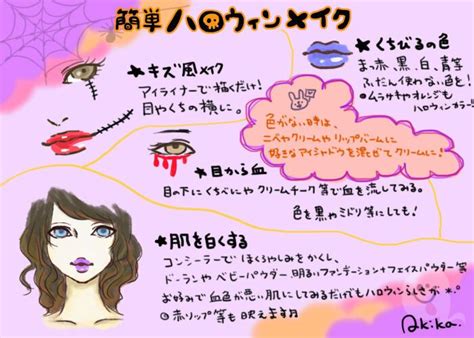 簡単ハロウィンメイク
★キズ風メイク
アイライナーで描くだけ!
目やくちの横に。
★くちびるの色
ま、赤、黒、白、青等
ふだん使わない色を!
ムラサキやオレンジも
ハロウィンカラー
色がない時は、
ニベヤクリームやリップバームに
好きなアイシャドウを混ぜてクリームに!
★目から血
目の下にくちべにやクリームチーク等で血を流してみる。
色を黒やミドリ等にしても!
★肌を白くする
コンシーラーでほくろやしみをかくし、
ドーランやベビーパウダー、明るいファンデーション+フェイスパウダー等
お好みで血色が悪い肌にしてみるだけでもハロウィンらしさが*.°
◎赤リップ等も映えます
Akika.